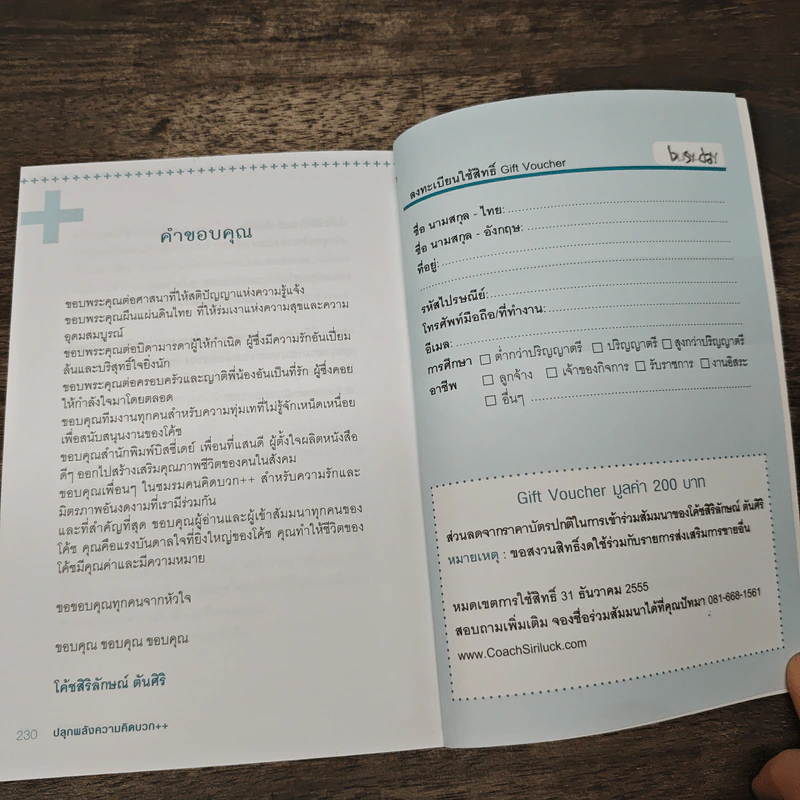 คำขอบคุณ
ขอบพระคุณต่อศาสนาที่ให้สติปัญญาแห่งความรู้แจ้ง
ขอบพระคุณผืนแผ่นดินไทย ที่ให้ร่มเงาแห่งความสุขและความ
อุดมสมบูรณ์
ขอบพระคุณต่อบิดามารดาผู้ให้กำเนิด ผู้ซึ่งมีความรักอันเปี่ยม
ล้นและบริสุทธิ์ใจยิ่งนัก
ขอบพระคุณต่อครอบครัวและญาติพี่น้องอันเป็นที่รัก ผู้ซึ่งคอย
ให้กำลังใจมาโดยตลอด
ขอบคุณทีมงานทุกคนสำหรับความทุ่มเทที่ไม่รู้จักเหน็ดเหนื่อย
เพื่อสนับสนุนงานของโค้ช
ขอบคุณสำนักพิมพ์บิสซี่เดย์ เพื่อนที่แสนดี ผู้ตั้งใจผลิตหนังสือ
ดีๆ ออกไปสร้างเสริมคุณภาพชีวิตของคนในสังคม
ขอบคุณเพื่อนๆ ในชมรมคนคิดบวก++ สำหรับความรักและ
มิตรภาพอันงดงามที่เรามีร่วมกัน
และที่สำคัญที่สุด ขอบคุณผู้อ่านและผู้เข้าสัมมนาทุกคนของ
โค้ช คุณคือแรงบันดาลใจที่ยิ่งใหญ่ของโค้ช คุณทำให้ชีวิตของ
โค้ชมีคุณค่าและมีความหมาย
ขอขอบคุณทุกคนจากหัวใจ
ขอบคุณ ขอบคุณ ขอบคุณ
โค้ชสิริลักษณ์ ตันศิริ
230 ปลุกพลังความคิดบวก++
busy-day
ลงทะเบียนใช้สิทธิ์ Gift Voucher
ชื่อ นามสกุล - ไทย:
ชื่อ นามสกุล - อังกฤษ:
ที่อยู่:
รหัสไปรษณีย์:
โทรศัพท์มือถือ/ที่ทำงาน:
อีเมล:
การศึกษา ต่ำกว่าปริญญาตรี ปริญญาตรี สูงกว่าปริญญาตรี
อาชีพ ลูกจ้าง เจ้าของกิจการ รับราชการ งานอิสระ
อื่นๆ
Gift Voucher มูลค่า 200 บาท
ส่วนลดจากราคาบัตรปกติในการเข้าร่วมสัมมนาของโค้ชสิริลักษณ์ ตันศิริ
หมายเหตุ : ขอสงวนสิทธิ์งดใช้ร่วมกับรายการส่งเสริมการขายอื่น
หมดเขตการใช้สิทธิ์ 31 ธันวาคม 2555
สอบถามเพิ่มเติม จองชื่อร่วมสัมมนาได้ที่คุณปัทมา 081-668-1561
www.CoachSiriluck.com